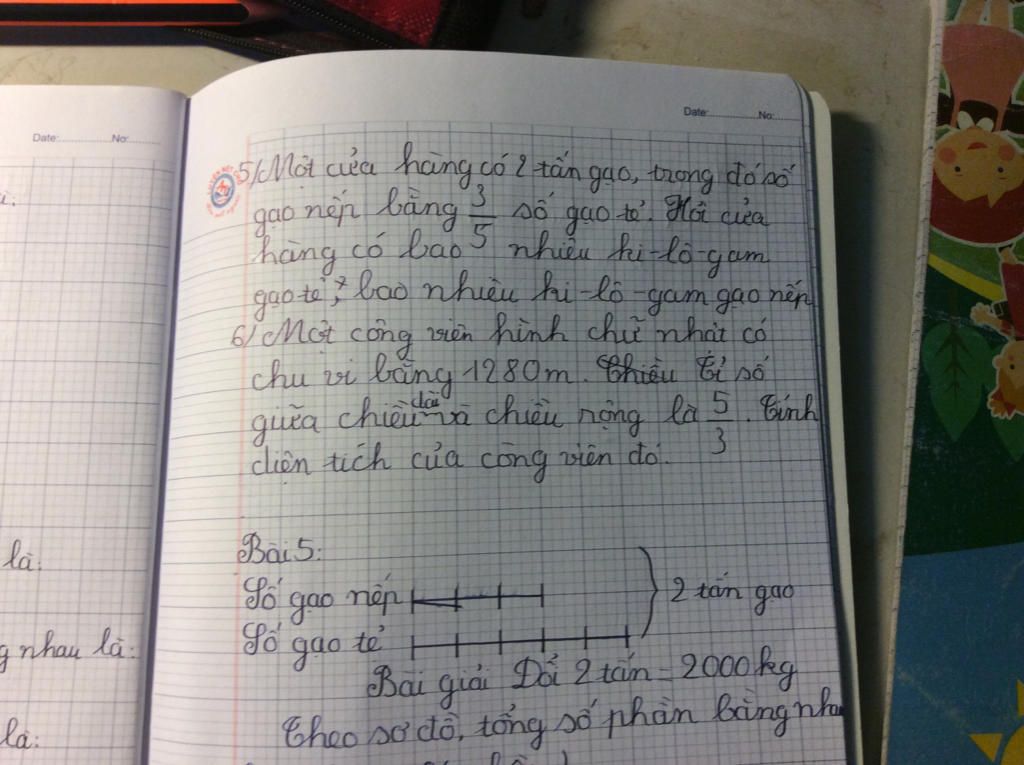 Date: No:
Date: No:
5/ Một cửa hàng có 2 tấn gạo, trong đó số
gạo nếp bằng 3/5 số gạo tẻ. Hỏi cửa
hàng có bao nhiêu ki-lô-gam
gạo tẻ, bao nhiêu ki-lô-gam gạo nếp
6/ Một công viên hình chữ nhật có
chu vi bằng 1280m. Chiều Tỉ số
giữa chiều dài và chiều rộng là 5/3. Tính
diện tích của công viên đó.
là:
nhau là:
là:
Bài 5:
Số gạo nếp
2 tấn gạo
Số gạo tẻ
Bài giải Đổi 2 tấn = 2000kg
Theo sơ đồ, tổng số phần bằng